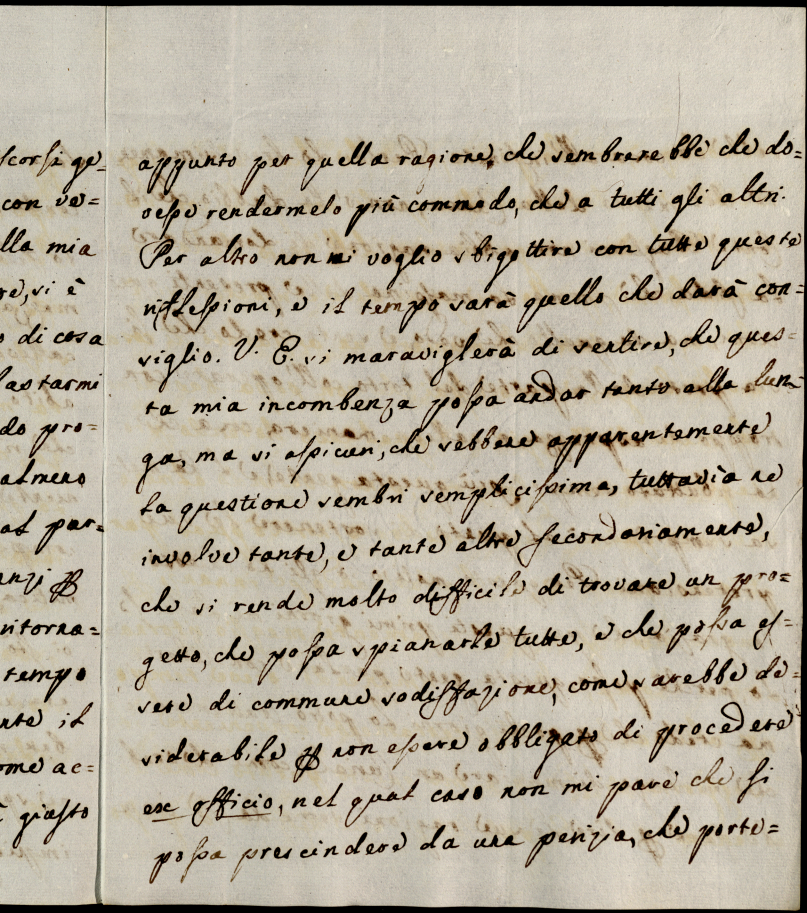 scorsi ge-
con ve=
lla mia
re, si è
o di cosa
lastarmi
do pro=
almeno
al par-
anzi ꝑ
ritorna=
tempo
nte il
ome ac=
giusto
appunto per quella ragione, che sembrerebbe che do=
vesse rendermelo più commodo, che a tutti gli altri.
Per altro non mi voglio sbigottire con tutte queste
riflessioni, e il tempo sarà quello che darà con=
siglio. V. E. si maraviglerà di sentire, che ques=
ta mia incombenza possa andar tanto alla lun=
ga, ma si assicuri, che sebbene apparentemente
la questione sembri semplicissima, tuttavia ne
involve tante, e tante altre secondariamente,
che si rende molto difficile di trovare un pro=
getto, che possa spianarle tutte, e che possa es=
sere di commune sodisfazione, come sarebbe de=
siderabile ꝑ non essere obbligato di procedere
ex officio, nel qual caso non mi pare che si
possa prescindere da una perizia, che porte=